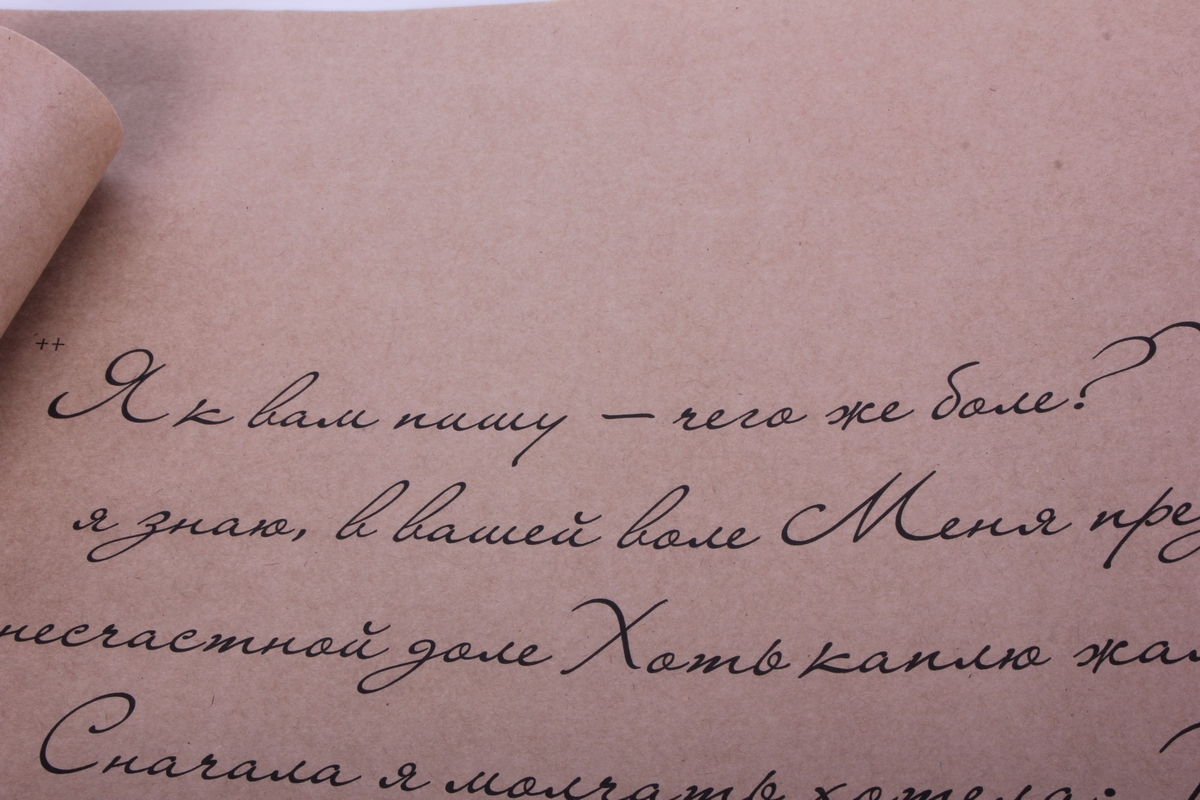 ++
Я к вам пишу – чего же боле?
я знаю, в вашей воле Меня
несчастной доле Хоть каплю
Сначала я молчать хотела: